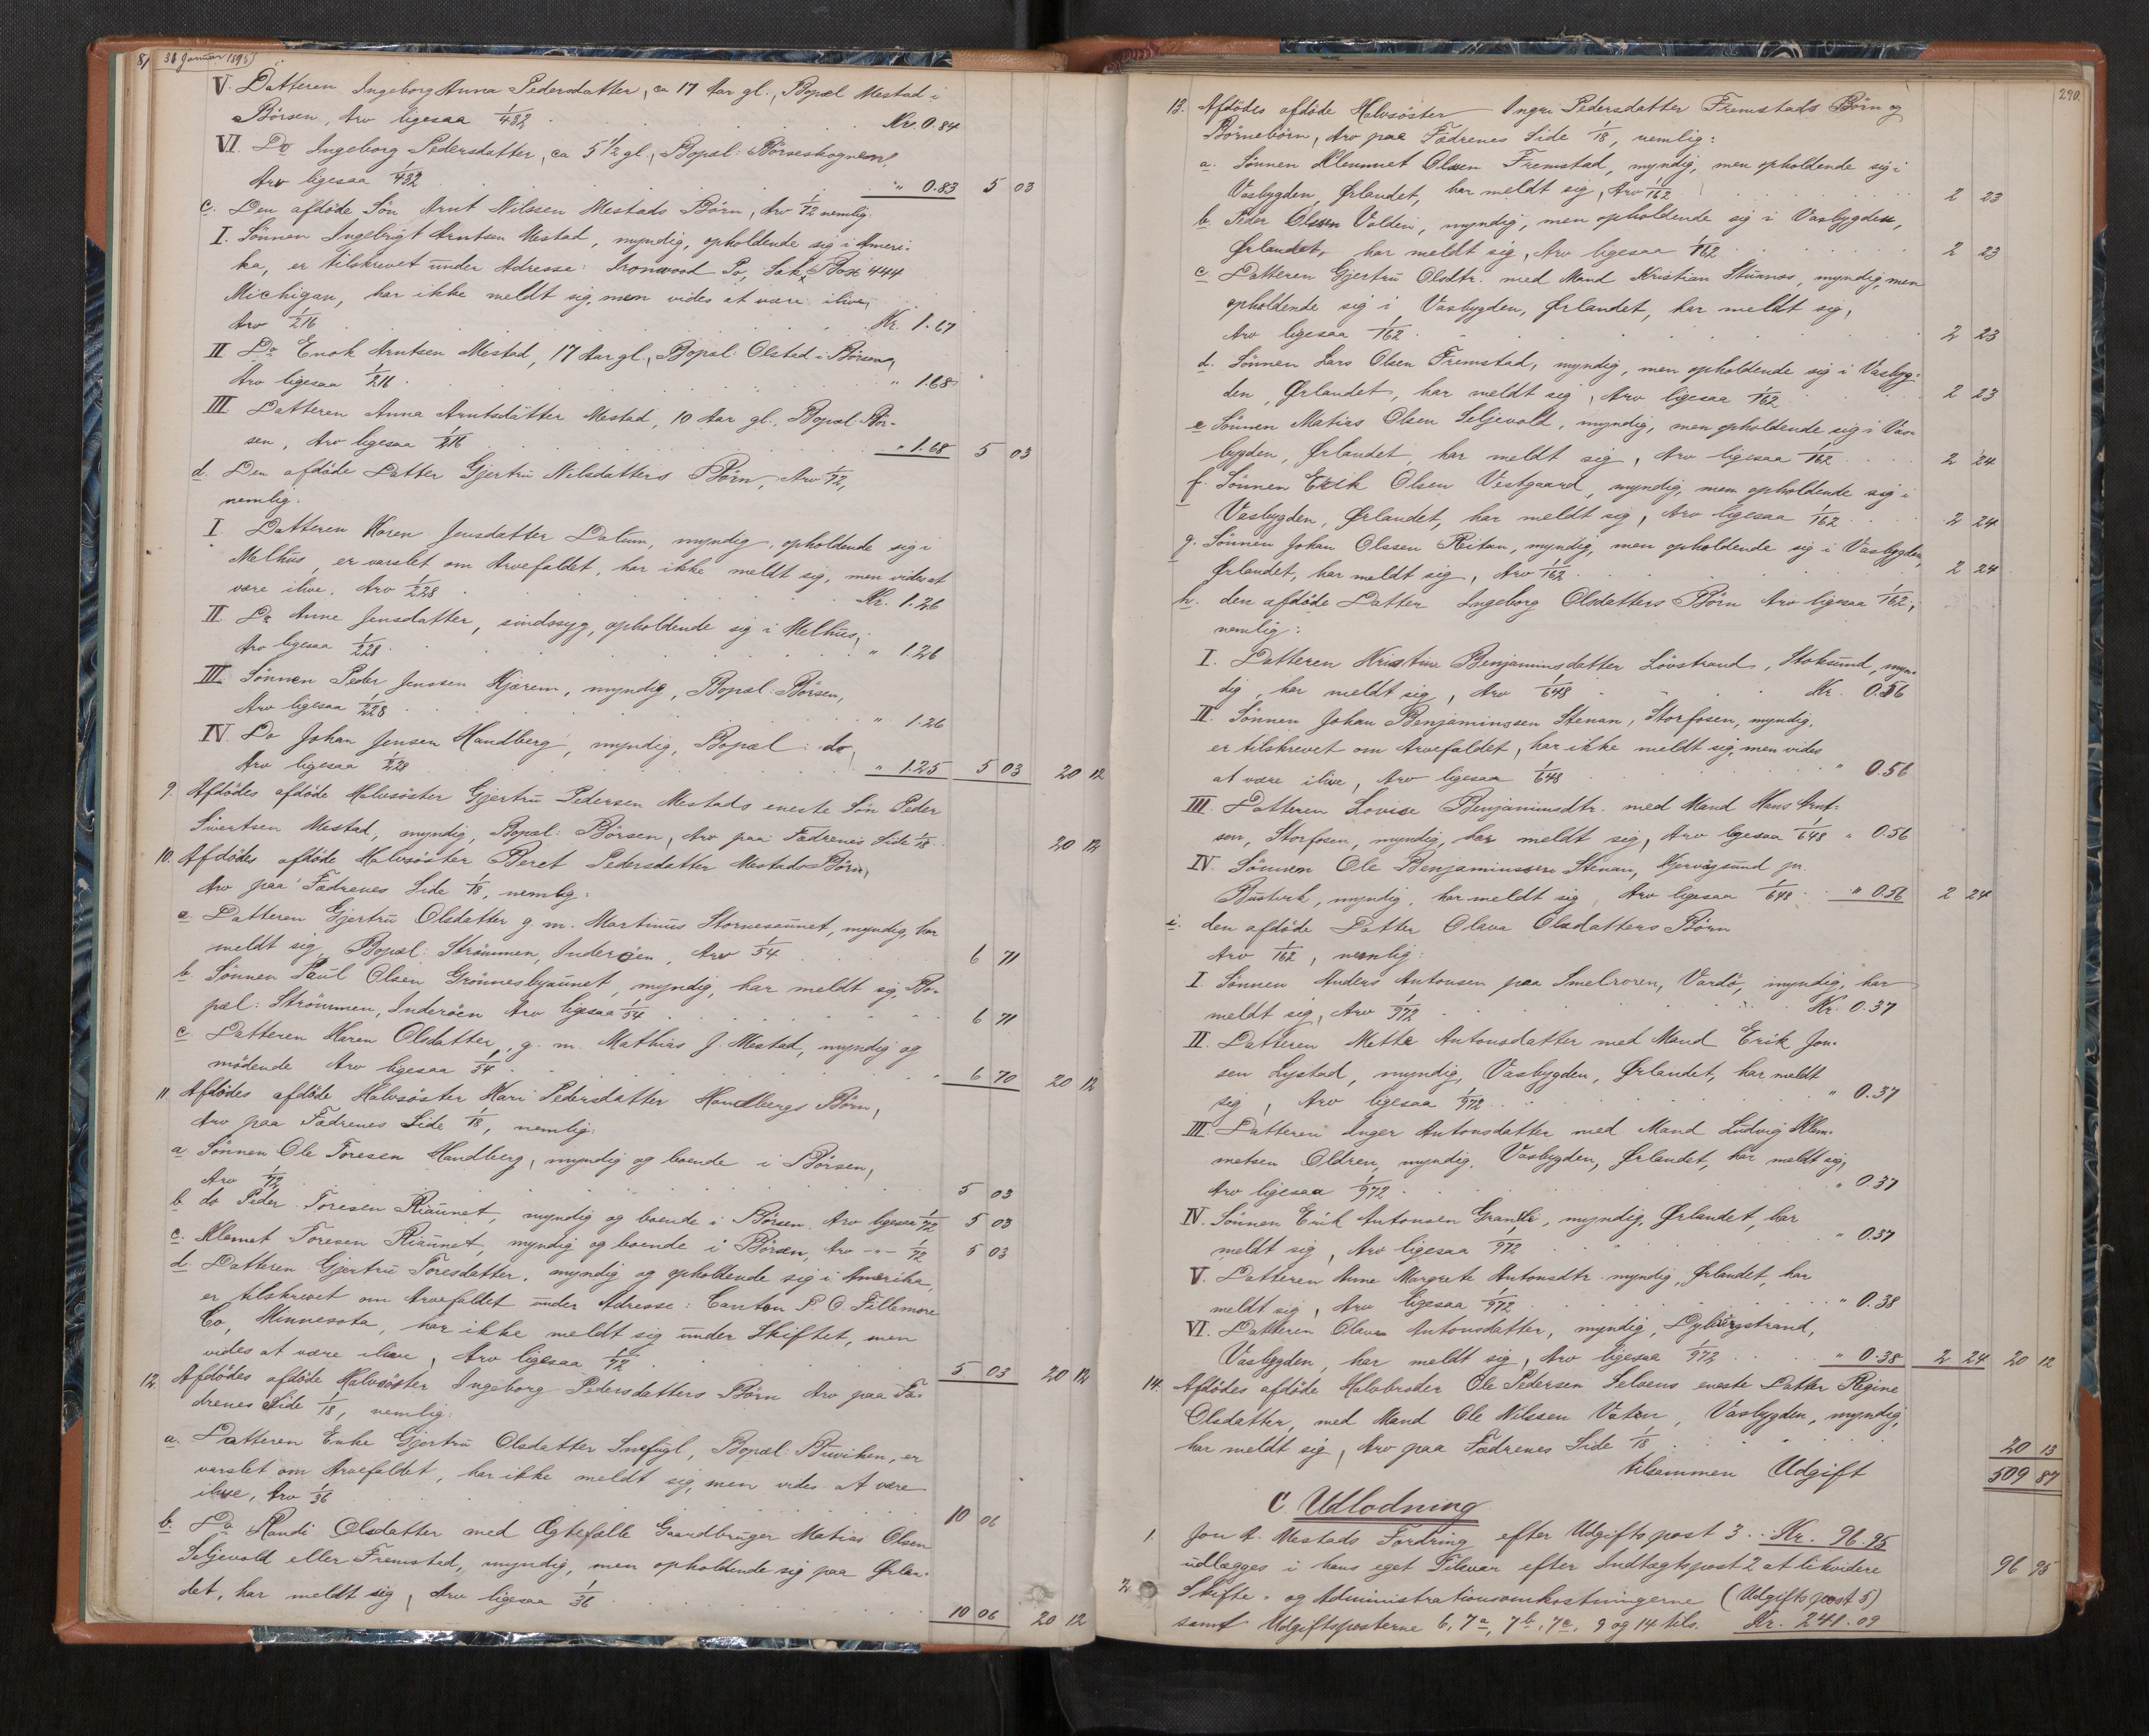 8/ 31 Januar 1896
V. Datteren Ingeborg Anna Pedersdatter, ca 17 Aar gl., Bopæl Mestad i
Börsen, Arv ligesaa 1/432 . . . Kr. 0.84
VI. Do Ingeborg Pedersdatter, ca 5 1/2 gl., Bopæl: Börseskognen,
Arv ligesaa 1/432 . . . " 0.83 5 03
c. Den afdöde Sön Arnt Nilssen Mestads Börn, Arv 1/72 nemlig:
I. Sönnen Ingebrigt Arntsen Mestad, myndig, opholdende sig i Ameri-
ka, er tilskrevet under Adresse: Ironwood Po, Box 444
Michigan, har ikke meldt sig, men vides at være ilive,
Arv 1/216 . . . Kr. 1.67
II Do Enok Arntsen Mestad, 17 Aar gl., Bopæl: Olstad i Börsen,
Arv ligesaa 1/216 . . . " 1.68
III Datteren Anna Arntsdatter Mestad, 10 Aar gl., Bopæl: Bör-
sen, Arv ligesaa 1/216 . . . " 1.68 5 03
d. Den afdöde Datter Gjertru Nilsdatters Börn, Arv 1/72,
nemlig:
I. Datteren Karen Jensdatter Dalum, myndig, opholdende sig i
Melhus, er varslet om Arvefaldet, har ikke meldt sig, men vides at
være ilive. Arv 1/228 . . . Kr. 1.26
II. Do Anne Jensdatter, sindssyg, opholdende sig i Melhus,
Arv ligesaa 1/228 . . . " 1.26
III. Sönnen Peder Jenssen Kjærem, myndig, Bopæl: Börsen,
Arv ligesaa 1/228 . . . " 1.26
IV. Do Johan Jensen Handberg, myndig, Bopæl: do,
Arv ligesaa 1/228 . . . " 1.25 5 03 20 12
9. Afdödes afdöde Halvsöster Gjertru Pedersen Mestads eneste Sön Peder
Sivertsen Mestad, myndig, Bopæl: Börsen, Arv paa Fædrenes Side 1/18 . . 20 12
10. Afdödes afdöde Halvsöster Beret Pedersdatter Mestads Börn,
Arv paa Fædrenes Side 1/18, nemlig:
a. Datteren Gjertru Olsdatter g. m. Martinus Stornesaunet, myndig, har
meldt sig, Bopæl: Strömmen, Inderöen, Arv 1/54 . . . 6 71
b. Sönnen Paul Olsen Grönnesbyaunet, myndig, har meldt sig, Bo-
pæl: Strömmen, Inderöen Arv ligesaa 1/54 . . . 6 71
c. Datteren Karen Olsdatter, g. m. Mathias J. Mestad, myndig og
mödende Arv ligesaa 1/54 . . . 6 70 20 12
11. Afdödes afdöde Halvsöster Mari Pedersdatter Handbergs Börn,
Arv paa Fædrenes Side 1/18, nemlig:
a. Sönnen Ole Toresen Handberg, myndig og boende i Börsen,
Arv 1/72 . . . 5 03
b. do Peder Toresen Riaunet, myndig og boende i Börsen, Arv ligesaa 1/72 5 03
c. Klemet Toresen Riaunet, myndig og boende i Börsen, Arv -"- 1/72 5 03
d. Datteren Gjertru Toresdatter, myndig og opholdende sig i Amerika,
er tilskrevet om Arvefaldet under Adresse: Canton P. O. Fillemore
Co, Minnesota, har ikke meldt sig under Skiftet, men
vides at være ilive, Arv ligesaa 1/72 . . . 5 03 20 12
12. Afdödes afdöde Halvsöster Ingeborg Pedersdatters Börn Arv paa Fæ-
drenes Side 1/18, nemlig:
a. Datteren Enke Gjertru Olsdatter Snefugl, Bopæl: Buviken, er
varslet om Arvefaldet, har ikke meldt sig, men vides at være
ilive, Arv 1/36 . . . 10 06
b. Do Randi Olsdatter med Ægtefælle Gaardbruger Matias Olsen
Seljevold eller Fremstad, myndig, men opholdende sig paa Ørlan-
det, har meldt sig, Arv ligesaa 1/36 . . . 10 06 20 12
290.
13. Afdödes afdöde Halvsöster Ingri Pedersdatter Fremstads Börn og
Börnebörn, Arv paa Fædrenes Side 1/18, nemlig:
a. Sönnen Klemmet Olsen Fremstad, myndig, men opholdende sig i
Vasbygden, Ørlandet, har meldt sig, Arv 1/162 . . . 2 23
b. Peder Olsen Volden, myndig, men opholdende sig i Vasbygden,
Ørlandet, har meldt sig, Arv ligesaa 1/162 . . . 2 23
c. Datteren Gjertru Olsdtr. med Mand Kristian Stuanos, myndig, men
opholdende sig i Vasbygden, Ørlandet, har meldt sig,
Arv ligesaa 1/162 . . . 2 23
d. Sönnen Lars Olsen Fremstad, myndig, men opholdende sig i Vasbyg-
den, Ørlandet, har meldt sig, Arv ligesaa 1/162 . . . 2 23
e. Sönnen Matias Olsen Seljevold, myndig, men opholdende sig i Vas-
bygden, Ørlandet, har meldt sig, Arv ligesaa 1/162 . . . 2 24
f. Sönnen Erik Olsen Vestgaard, myndig, men opholdende sig i
Vasbygden, Ørlandet, har meldt sig, Arv ligesaa 1/162 . . . 2 24
g. Sönnen Johan Olssen Reitan, myndig, men opholdende sig i Vasbygden,
Ørlandet, har meldt sig, Arv 1/162 . . . 2 24
h. den afdöde Datter Ingeborg Olsdatters Börn Arv ligesaa 1/162,
nemlig:
I. Datteren Kristine Benjaminsdatter Lövstrand, Stoksund, myn-
dig, har meldt sig, Arv 1/648 . . . Kr. 0.56
II. Sönnen Johan Benjaminssen Stenan, Storfosen, myndig,
er tilskrevet om Arvefaldet, har ikke meldt sig, men vides
at være ilive, Arv ligesaa 1/648 . . . " 0.56
III. Datteren Lovise Benjaminsdtr. med Mand Hans Arnt-
sen, Storfosen, myndig, har meldt sig, Arv ligesaa 1/648 " 0.56
IV. Sönnen Ole Benjaminssen Stenan, Kjervögsund pr.
myndig, har meldt sig, Arv ligesaa 1/648 . . " 0.56 2 24
i. den afdöde Datter Olava Olsdatters Börn
Arv 1/162, nemlig:
I. Sönnen Anders Antonsen paa Smelroren, Vardö, myndig, har
meldt sig, Arv 1/972 . . . Kr. 0.37
II. Datteren Mette Antonsdatter med Mand Erik Jon-
sen Lystad, myndig, Vasbygden, Ørlandet, har meldt
sig, Arv ligesaa 1/972 . . . " 0.37
III. Datteren Inger Antonsdatter med Mand Ludvig Klem-
metsen Oldren, myndig, Vasbygden, Ørlandet, har meldt sig,
Arv ligesaa 1/972 . . . " 0.37
IV. Sönnen Erik Antonsen Grande, myndig, Ørlandet, har
meldt sig, Arv ligesaa 1/972 . . . " 0.37
V. Datteren Anne Margrete Antonsdtr. myndig, Ørlandet, har
meldt sig, Arv ligesaa 1/972 . . . " 0.38
VI. Datteren Olava Antonsdatter, myndig,
Vasbygden, har meldt sig, Arv ligesaa 1/972 . . . " 0.38 2 24 20 12
14. Afdödes afdöde Halvbroder Ole Pedersen Selvens eneste Datter Regine
Olsdatter, med Mand Ole Nilssen Vatn, Vasbygden, myndig,
har meldt sig, Arv paa Fædrenes Side 1/18 . . . 20 13
tilsammen Udgift 509 87
C Udlodning
1. Jon A. Mestads Fordring efter Udgiftspost 3 . . Kr. 96.95
udlægges i hans eget Tilsvar efter Indtægtspost 2 at likvidere 96 95
2. Skifte- og Administrationsomkostningerne (Udgiftspost 5)
samt Udgiftsposterne 6, 7a, 7b, 7c, 9 og 14 tils. Kr. 241.09